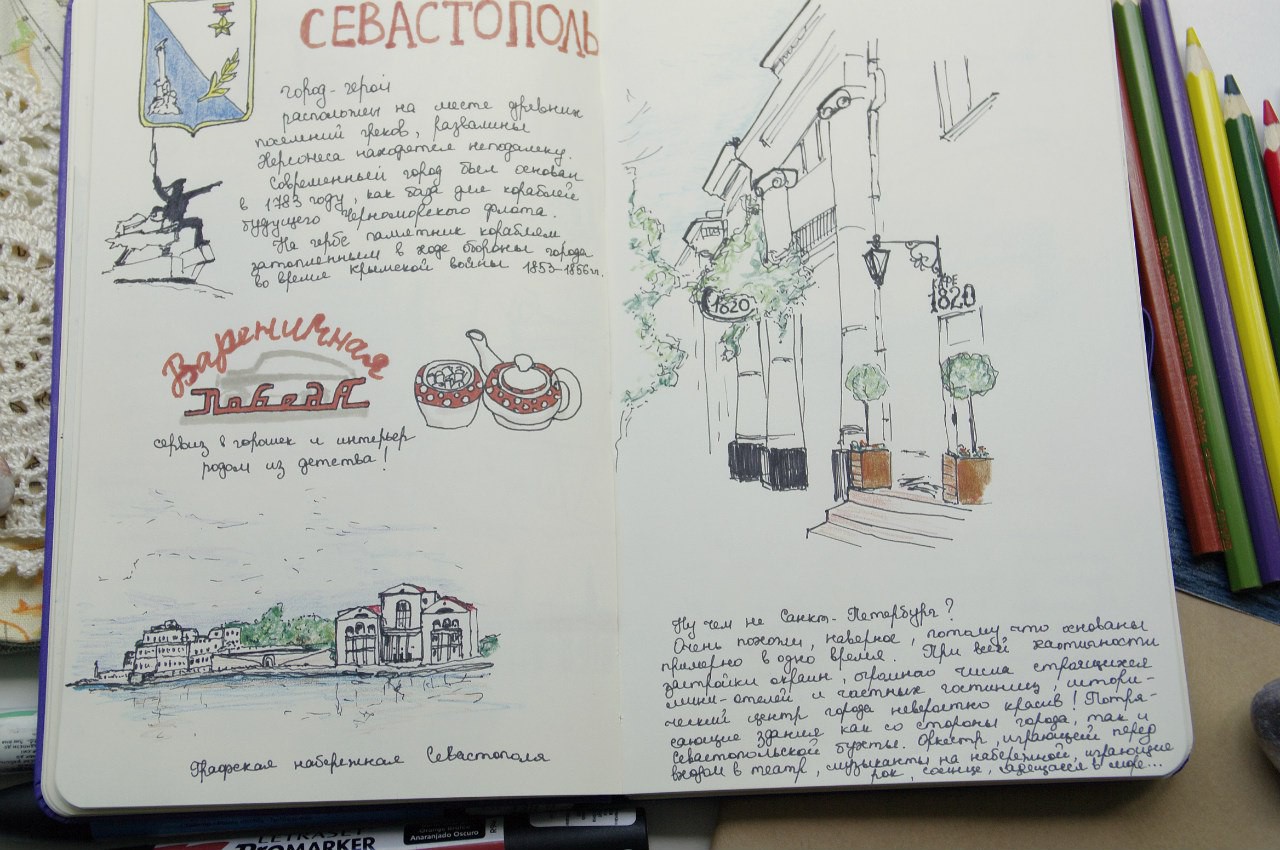 СЕВАСТОПОЛЬ
город-герой
расположен на месте древних
поселений греков, развалины
Херсонеса находятся неподалеку.
Современный город был основан
в 1783 году, как база для кораблей
будущего Черноморского флота.
На гербе памятник кораблям
затопленным в ходе обороны города
во время крымской войны 1853-1856 гг.
Вареничная
ПобедА
сервиз в горошек и интерьер
родом из детства!
Графская набережная Севастополя
1820
КАФЕ
1820
Ну чем не Санкт-Петербург?
Очень похожи, наверное, потому что основаны
примерно в одно время. При всей хаотичности
застройки окраин, огромного числа строящихся
мини-отелей и частных гостиниц, истори-
ческий центр города невероятно красив! Потря-
сающие здания как со стороны города, так и
Севастопольской бухты. Оркестр, играющий перед
входом в театр, музыканты на набережной, играющие
рок, солнце, садящееся в море...
LETRASET
PROMARKER
Anaranjado Oscuro